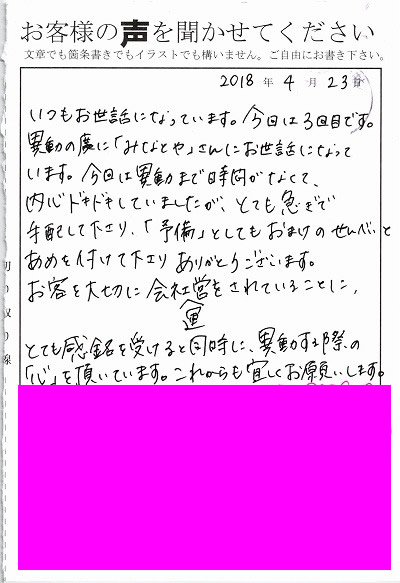 お客様の声を聞かせてください
文章でも箇条書きでもイラストでも構いません。ご自由にお書き下さい。
2018年4月23日
いつもお世話になっています。今回は3回目です。
異動の度に「みなとや」さんにお世話になって
います。今回は異動まで時間がなくて、
内心ドキドキしていましたが、とても急ぎで
手配して下さり、「予備」としてもおまけのせんべいと
あめを付けて下さりありがとうございます。
お客を大切に会社営をされていることに、
運
とても感銘を受けると同時に、異動する際の
「心」を頂いています。これからも宜しくお願いします。
切り取り線